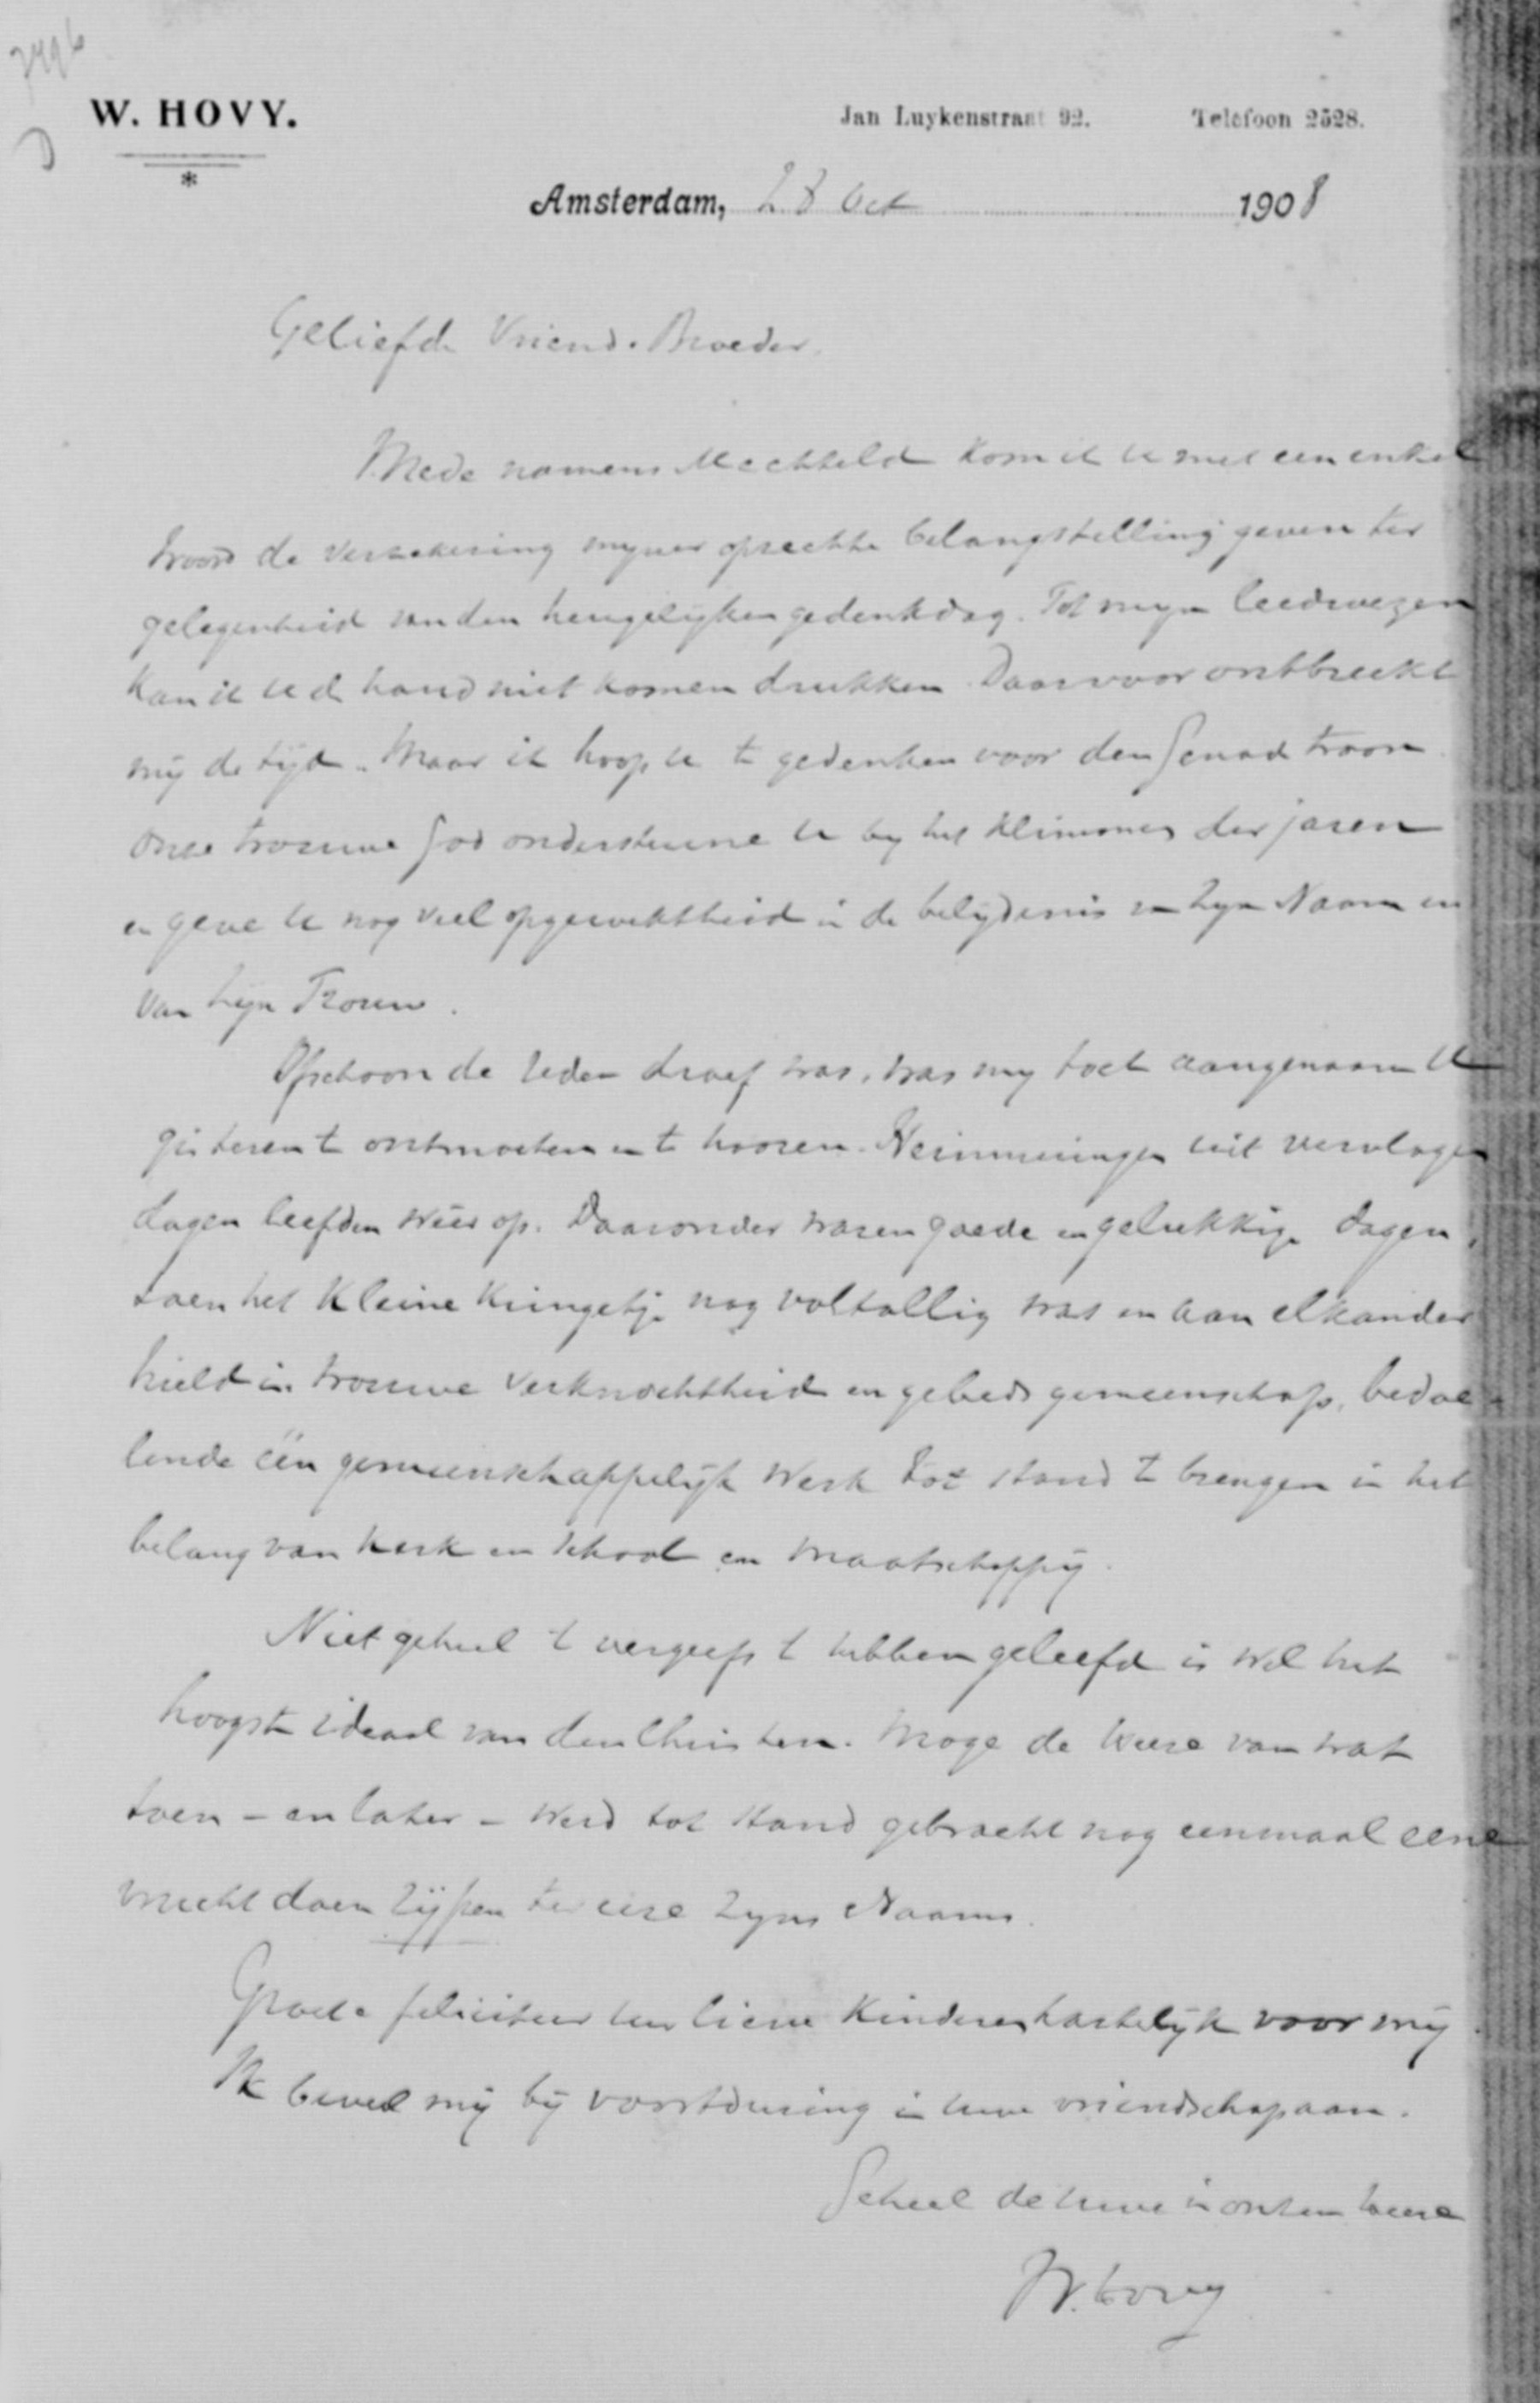 7496
W. HOVY.
Jan Luykenstraat 92. Telefoon 2528.
Amsterdam, 28 Oct 1908
Geliefde Vriend. Broeder.
Mede namens Mechteld kom ik U met een enkel
woord de verzekering mijner oprechte belangstelling geven ter
gelegenheid van den heugelijken gedenkdag. Tot mijn leedwezen
kan ik U d hand niet komen drukken. Daarvoor ontbreekt
mij de tijd. Maar ik hoop U te gedenken voor den Genadtroon
Onze trouwe God ondersteune U bij het klimmen der jaren
en geve U nog veel opgewektheid in de belijdenis van Zijn Naam en
van Zijn Trouw.
Ofschoon de reden droef was, was mij toch aangenaam U
gisteren te ontmoeten en te hooren. Herinneringen uit vervlogen
dagen leefden weer op. Daaronder waren goede en gelukkige dagen,
toen het kleine kringetje nog voltallig was en aan elkander
hield in trouwe verknochtheid en gebedsgemeenschap, bedoe-
lende één gemeenschappelijk werk tot stand te brengen in het
belang van kerk en school en maatschappij.
Niet geheel te vergeefs te hebben geleefd is wel het
hoogste ideaal van den Christen. Moge de Heere van wat
toen - en later - werd tot stand gebracht nog eenmaal eene
vrucht doen rijpen ter eere Zijns Naams.
Groet e feliciteer uw lieve kinderen hartelijk voor mij.
Ik beveel mij bij voortduring in uwe vriendschap aan.
Geheel de uwe in onzen Heere
W. Hovy